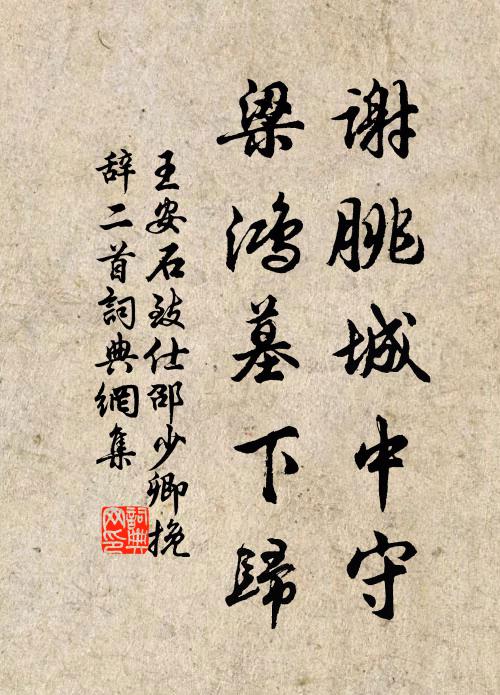 谢朓城中守
梁鸿墓下歸
王安石致仕邵少卿挽
辞二首詞典網集
詞典网印